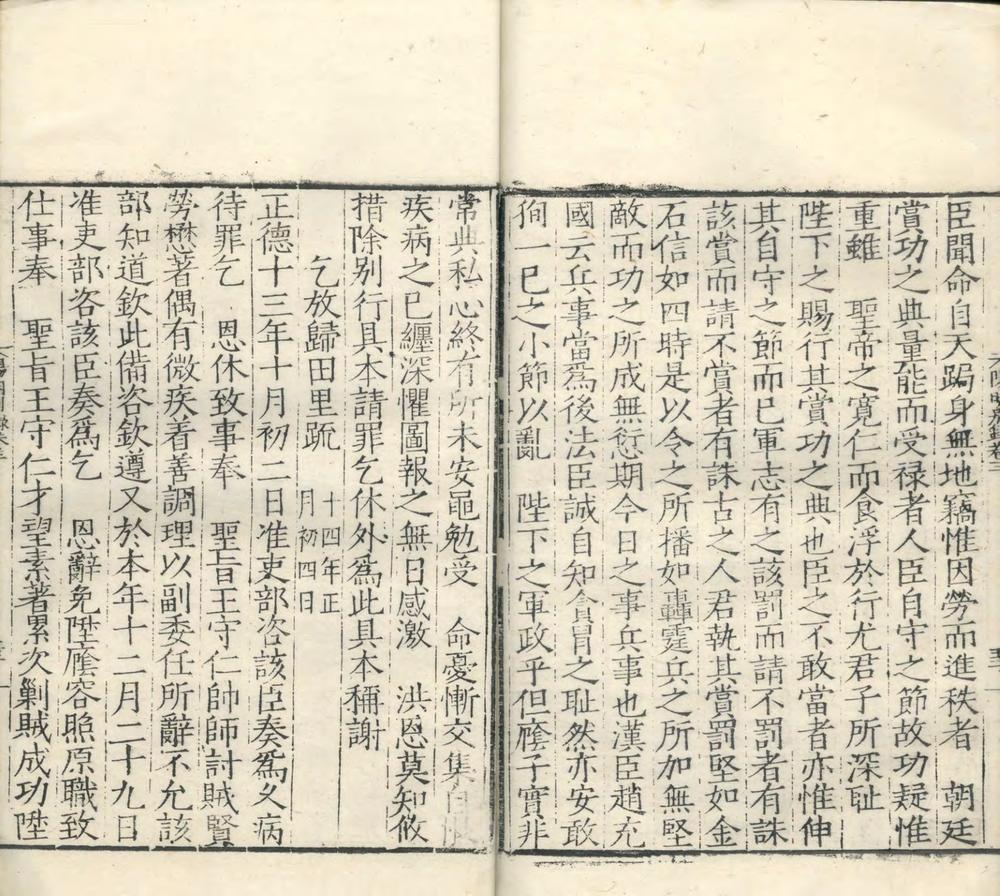 臣聞命自天跼身無地竊惟因勞而進秩者　朝廷
賞功之典量能而受祿者人臣自守之節故功疑惟
重雖　聖帝之寬仁而食浮於行尤君子所深耻
陛下之賜行其賞功之典也臣之不敢當者亦惟伸
其自守之節而已軍志有之該罰而請不罰者有誅
該賞而請不賞者有誅古之人君執其賞罰堅如金
石信如四時是以令之所播如轟霆兵之所加無堅
敵而功之所成無愆期今日之事兵事也漢臣趙充
國云兵事當爲後法臣誠自知貪冒之耻然亦安敢
狥一已之小節以亂　陛下之軍政乎但廕子實非
常典私心終有所未安黽勉受　命憂慚交集自恨
疾病之已纏深懼圖報之無日感激　洪恩莫知攸
措除别行具本請罪乞休外爲此具本稱謝
乞放歸田里疏　十四年正月初四日
正德十三年十月初二日准吏部咨該臣奏爲乆病
待罪乞　恩休致事奉　聖旨王守仁帥師討賊賢
勞懋著偶有微疾着善調理以副委任所辭不允該
部知道欽此備咨欽遵又於本年十二月二十九日
准吏部咨該臣奏爲乞　恩辭免陞廕容照原職致
仕事奉　聖旨王守仁才望素著累次剿賊成功陞